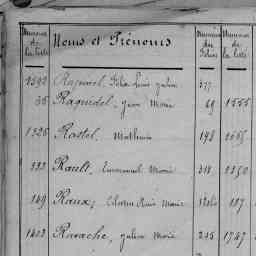 Numéros de la liste Noms et Prénoms Numéros des Folios Numéros de la liste
1592 Raguinel, Félix Louis Julien 377
35 Raguidel, Jean Marie 69 1555
1326 Rastel, Mathurin 198
333 Rault, Emmanuel Marie 318 1350
149 Raux, Marie 187
1403 Ravache, Julien Marie 245 1747